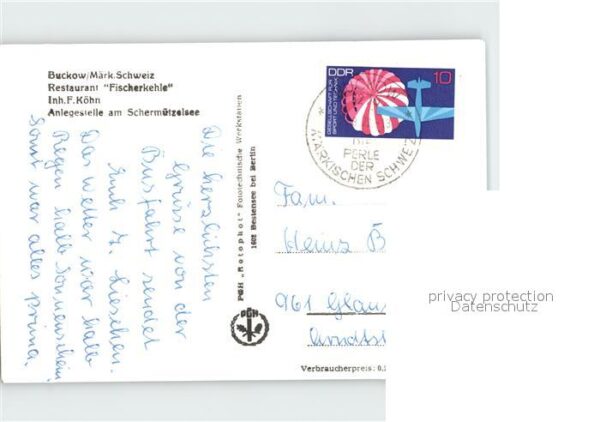 Buckow/Märk.Schweiz
Restaurant "Fischerkehle"
Inh.F.Köhn
Anlegestelle am Schermützelsee
Die herzlichsten
Grüsse von der
Busfahrt sendet
Euch
Das Wetter war halb
Regen halb Sonnenschein
Sonst war alles prima.
PGH „Rotophot" Fototechnische Werkstätten
1602 Bestensee bei Berlin
PGH
DDR
10
GESELLSCHAFT FÜR
SPORT UND TECHNIK
DIE
PERLE
DER
MÄRKISCHEN SCHWEIZ
Fam.
Heinz B
961 Glau
Verbraucherpreis: 0,
privacy protection
Datenschutz